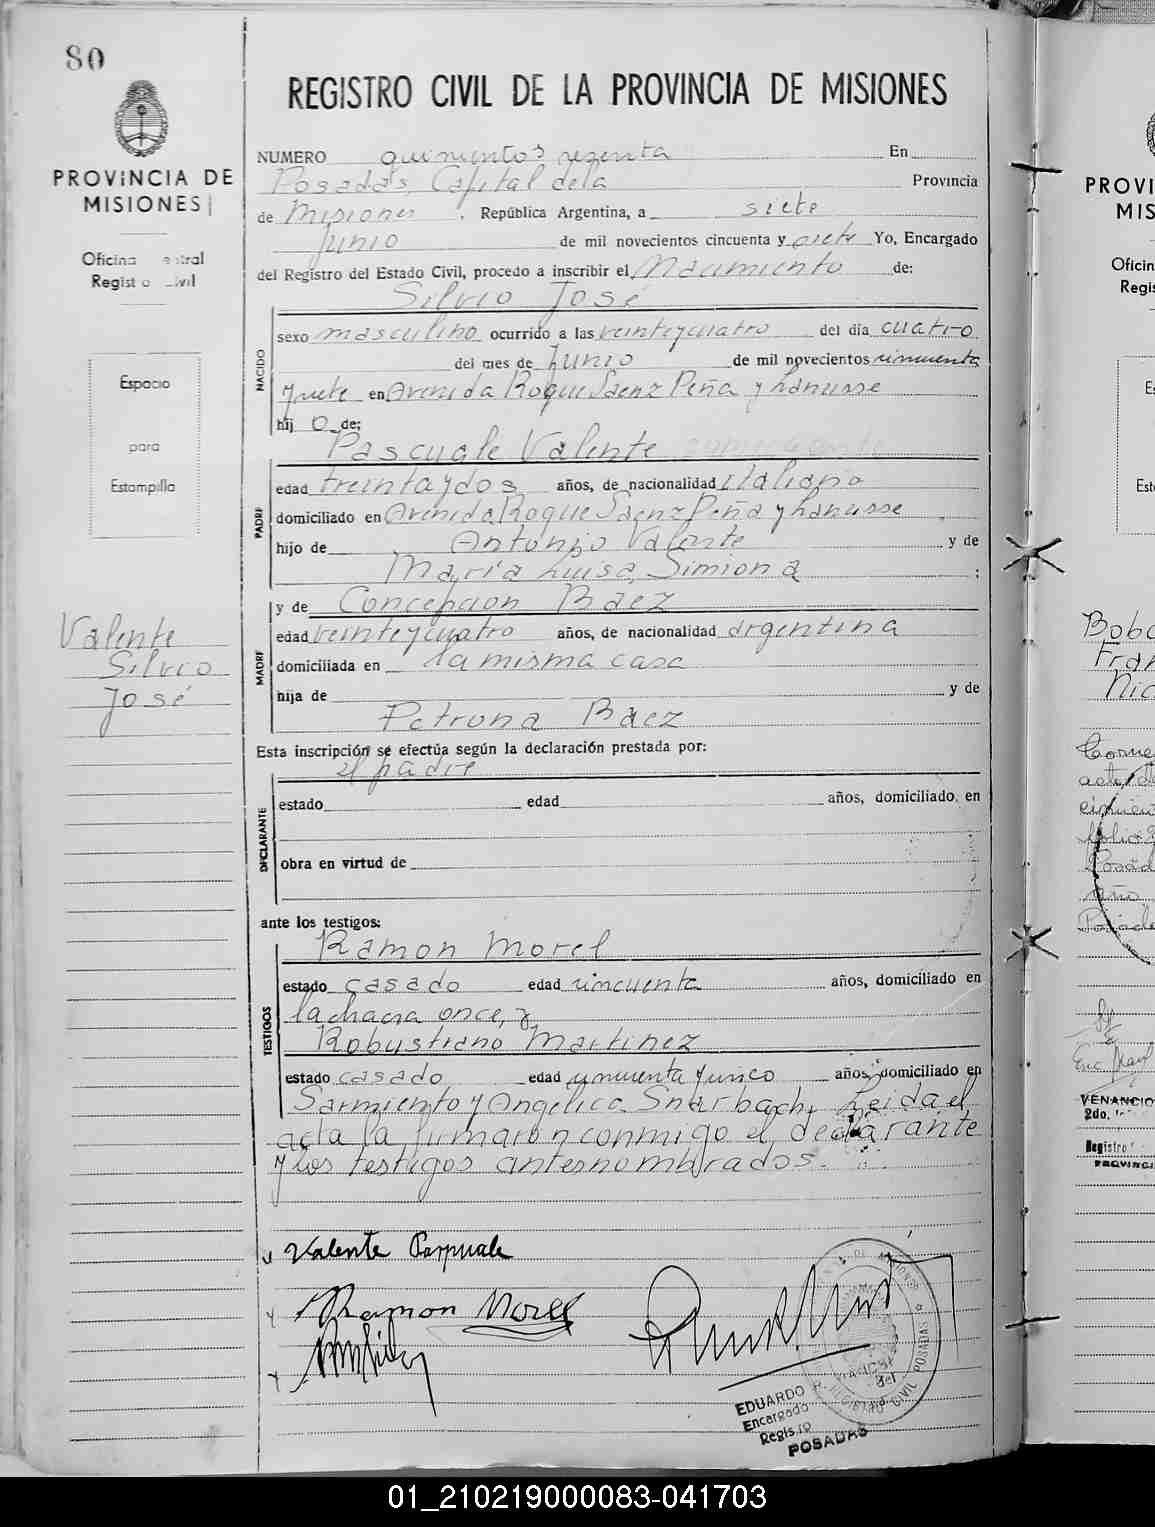 80
PROVINCIA DE
MISIONES
Oficina Central
Registro Civil
Espacio
para
Estampilla
Valente
Silvio
José
REGISTRO CIVIL DE LA PROVINCIA DE MISIONES
NUMERO quinientos sesenta En
Posadas, Capital de la Provincia
de Misiones, República Argentina, a siete
Junio de mil novecientos cincuenta y siete Yo, Encargado
del Registro del Estado Civil, procedo a inscribir el Nacimiento de:
Silvio José
NACIDO
sexo masculino ocurrido a las veinteycuatro del día cuatro
del mes de Junio de mil novecientos cincuenta
y siete en Avenida Roque Saenz Peña y Lanusse
hijo de:
Pascuale Valente
PADRE
edad treintaydos años, de nacionalidad italiana
domiciliado en Avenida Roque Saenz Peña y Lanusse
hijo de Antonio Valente y de
María Luisa Simiona ;
y de Concepcion Baez
MADRE
edad veinteycuatro años, de nacionalidad argentina
domiciliada en la misma casa
hija de y de
Petrona Baez
Esta inscripción se efectúa según la declaración prestada por:
el padre
DECLARANTE
estado edad años, domiciliado en
obra en virtud de
ante los testigos:
Ramon Morel
TESTIGOS
estado casado edad cincuenta años, domiciliado en
la chacra once, y
Robustiano Martinez
estado casado edad cincuenta y cinco años domiciliado en
Sarmiento y Angélica Snarbach, Leida el
acta la firmaron conmigo el declarante
y los testigos antesnombrados.
Valente Pasquale
Ramon Morel
EDUARDO R.
Encargado del
Registro
POSADAS
REGISTRO CIVIL POSADAS
PROVI
MIS
Oficin
Regis
Es
Est
Bobo
Fran
Nic
VENANCIO
2do.
Registro
PROVINCI
01_210219000083-041703